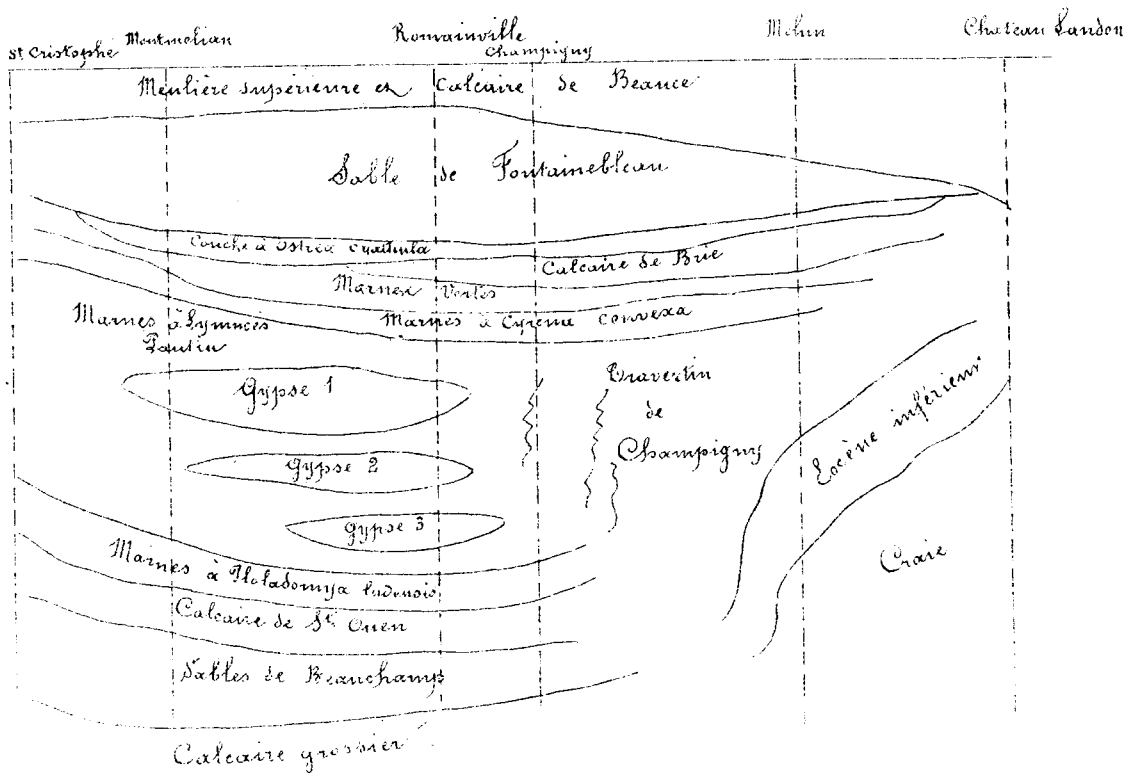 St Cristophe Montmelian Romainville Champigny Melun Chateau Landon
Meulière supérieure et Calcaire de Beauce
Sable de Fontainebleau
Couche à Ostrea cyathula
Calcaire de Brie
Marnes Vertes
Marnes à Cyrena convexa
Marnes à Lymnées
Pantin
Gypse 1
Travertin
de
Champigny
Gypse 2
Gypse 3
Eocène inférieur
Craie
Marnes à Pholadomya ludensis
Calcaire de St Ouen
Sables de Beauchamp
Calcaire grossier